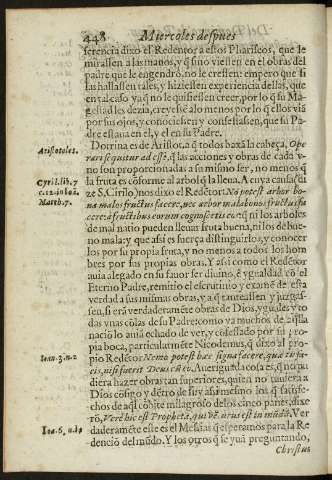 448 Miercoles despues
ferencia dixo el Redentor a estos Phariseos, que le
mirassen a las manos, y q̃ sino viessen en el obras del
padre que le engendrò, no le cressen: empero que si
las hallassen tales, y hiziessen experiencia dellas, que
en tal caso ya q̃ no le quisiessen creer, por lo q̃ su Ma-
gestad les dezia, creyesse alo menos por lo q̃ ellos viã
por sus ojos, y conociessen y confessassen, que su Pa-
dre estaua en el, y el en su Padre.
Aristoteles.
Dotrina es de Aristot. a q̃ todos baxã la cabeça, Ope-
rari sequitur ad esse: q̃ las acciones y obras de cada v-
no son proporcionadas a su mismo ser, no menos q̃
Cyril. lib. 7
la fruta es cõforme al arbol q̃ la lleua. A cuya causa (di
ze S. Cirilo) nos dixo el Redẽtor: Nõ potest arbor bo-
Matth. 7.
na malos fructus facere, nec arbor mala bonos fructus fa
cere: a fructibus eorum cognoscetis eos: q̃ ni los arboles
de mal natio pueden lleuar fruta buena, ni los de bue-
no mala: y que assi es fuerça distinguirlos, y conocer
los por su propia fruta, y no menos a todos los hom
bres por sus propias obras. Y assi como el Redẽtor
auia alegado en su fauor ser diuino, è ygualdad cõ el
Eterno Padre, remitio el escrutinio y examẽ de esta
verdad a sus mismas obras, y a q̃ tanteassen y juzgas-
sen, si erã verdaderamẽte obras de Dios, yguales y to
das vnas cõlas de su Padre: como ya muchos de aq̃lla
naciõ lo auiã echado de ver, y cõfessado por su pro-
pia boca, particularmẽte Nicodemus, q̃ dixo al mis-
Ioan. 3. n. 2
pio Redẽtor Nemo potest hæc signa facere, quæ tu fa-
cis, nisi fuerit Deus cũ eo. Aueriguada cosa es, q̃ no pu
diera hazer obras tan superiores, quien no tuuiera a
Dios cõsigo y dẽtro de si: y assimismo los q̃ satisfe-
chos de aq̃l cõbite milagroso de los cinco panes, dixe
Ioa. 6. n. 14
rõ, Verè hic est Propheta, qui vẽturus est in mũdũ. Ver
daderamẽte este es el Messias q̃ esperamos para la Re
dencio del mũdo. Y los otros q̃ se yuã preguntando,
Christus